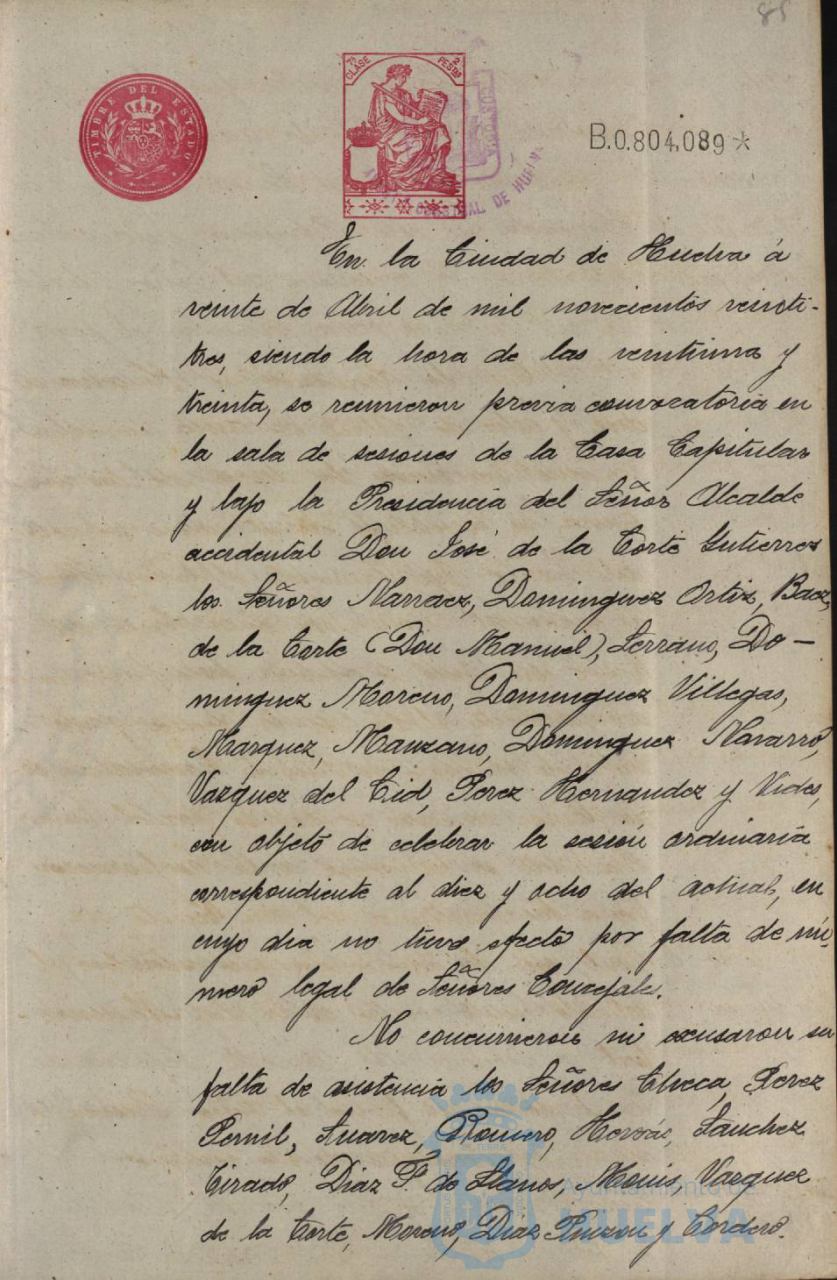 85
TIMBRE DEL ESTADO
7ª CLASE 2 PESETAS
B.0.804,089*
En la Ciudad de Huelva á
veinte de Abril de mil novecientos veinti-
tres, siendo la hora de las veintiuna y
treinta, se reunieron previa convocatoria en
la sala de sesiones de la Casa Capitular
y bajo la Presidencia del Señor Alcalde
accidental Don José de la Corte Gutierrez
los Señores Narvaez, Dominguez Ortiz, Baez,
de la Corte (Don Manuel), Serrano, Do-
minguez Moreno, Dominguez Villegas,
Marquez, Manzano, Dominguez Navarro,
Vazquez del Cid, Perez Hernandez y Vides,
con objeto de celebrar la sesión ordinaria
correspondiente al diez y ocho del actual, en
cuyo dia no tuvo efecto por falta de nú-
mero legal de Señores Concejales.
No concurrieron ni excusaron su
falta de asistencia los Señores Checa, Perez
Pernil, Suarez, Romero, Hervás, Sánchez
Tirado, Diaz F. de Llanos, Vazquez
de la Corte, Moreno, Diaz Pinzon y Cordero.
Ayuntamiento de
HUELVA